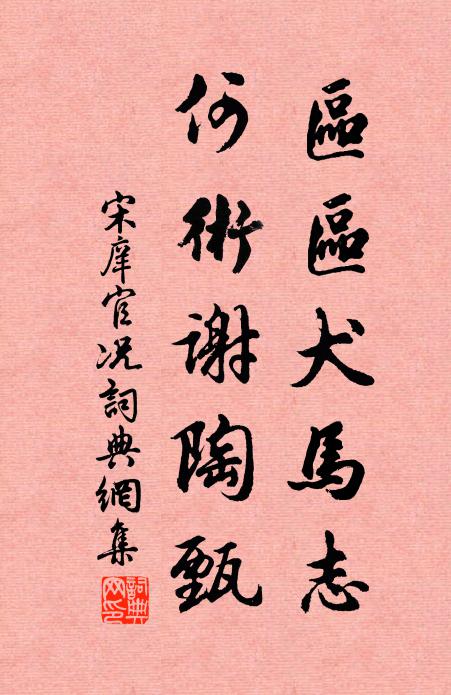 區區犬馬志
何術謝陶甄
宋庠官况詞典網集
詞典網印